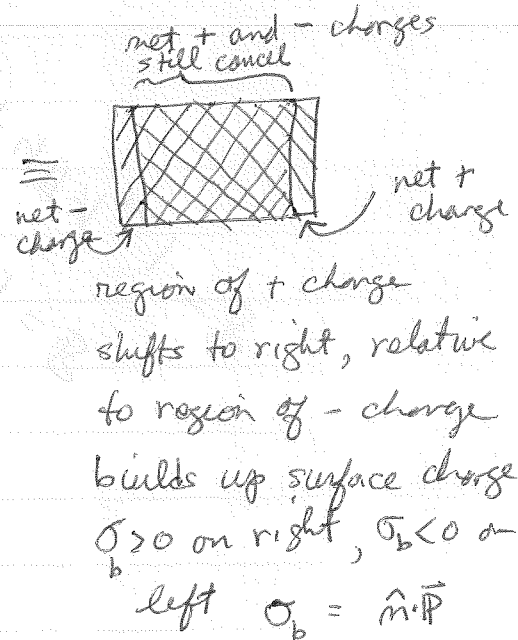 net + and - charges
still cancel
≡
net -
charge
net +
charge
region of + charge
shifts to right, relative
to region of - charge
builds up surface charge
σ_b > 0 on right, σ_b < 0 on
left σ_b = n̂·P⃗